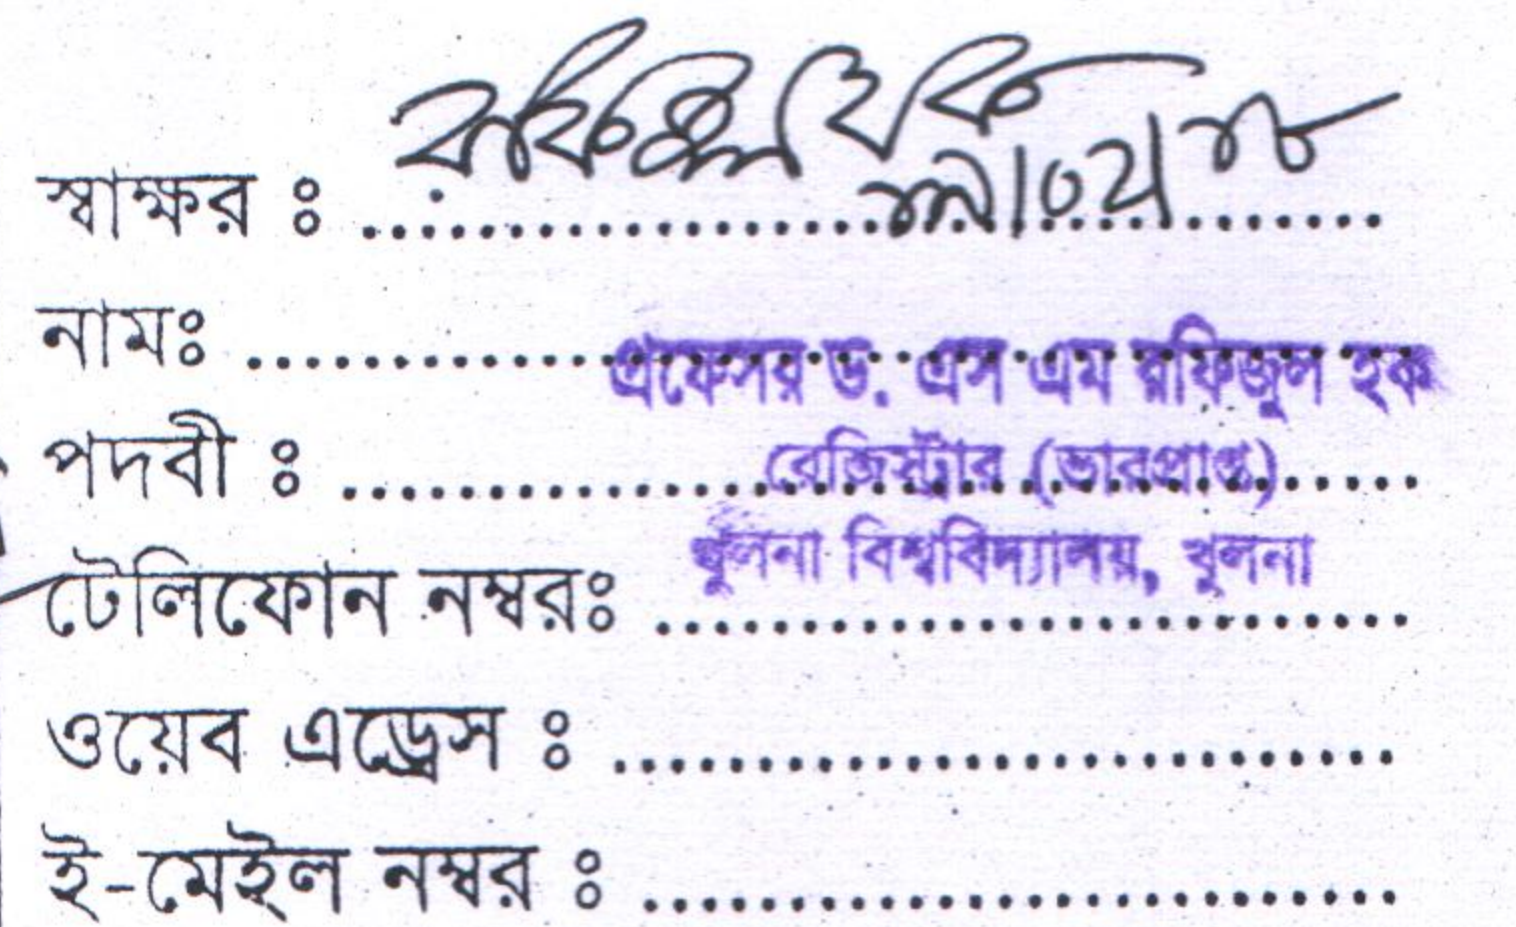 স্বাক্ষর ঃ রফিজুল হক
নামঃ প্রফেসর ড. এস এম রফিজুল হক
পদবী ঃ রেজিস্ট্রার (ভারপ্রাপ্ত)
খুলনা বিশ্ববিদ্যালয়, খুলনা
টেলিফোন নম্বরঃ
ওয়েব এড্রেস ঃ
ই-মেইল নম্বর ঃ